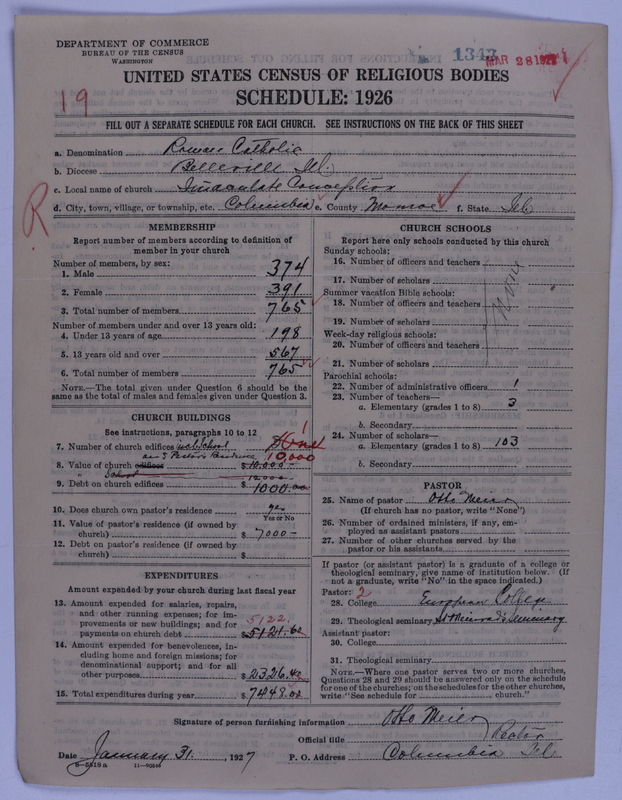 DEPARTMENT OF COMMERCE
BUREAU OF THE CENSUS
WASHINGTON
1343
MAR 28 1927
UNITED STATES CENSUS OF RELIGIOUS BODIES
19
SCHEDULE: 1926
FILL OUT A SEPARATE SCHEDULE FOR EACH CHURCH. SEE INSTRUCTIONS ON THE BACK OF THIS SHEET
a. Denomination Roman Catholic
b. Diocese Belleville Ill.
c. Local name of church Immaculate Conception
R
d. City, town, village, or township, etc. Columbia e. County Monroe f. State Ill.
MEMBERSHIP
Report number of members according to definition of
member in your church
Number of members, by sex:
1. Male 374
2. Female 391
3. Total number of members 765
Number of members under and over 13 years old:
4. Under 13 years of age 198
5. 13 years old and over 567
6. Total number of members 765
NOTE.—The total given under Question 6 should be the
same as the total of males and females given under Question 3.
CHURCH BUILDINGS
See instructions, paragraphs 10 to 12
1
7. Number of church edifices incl. School One
10,000
8. Value of church edifices $10,000—
" School 12,000
9. Debt on church edifices $1000.00
10. Does church own pastor's residence yes
Yes or No
11. Value of pastor's residence (if owned by
church) $7000—
12. Debt on pastor's residence (if owned by
church) $
EXPENDITURES
Amount expended by your church during last fiscal year
13. Amount expended for salaries, repairs,
and other running expenses; for im-
provements or new buildings; and for
5122
payments on church debt $5121.62
14. Amount expended for benevolences, in-
cluding home and foreign missions; for
denominational support; and for all
other purposes $2326.42
15. Total expenditures during year $7448.00
CHURCH SCHOOLS
Report here only schools conducted by this church
Sunday schools:
16. Number of officers and teachers
17. Number of scholars
Summer vacation Bible schools:
18. Number of officers and teachers
None
19. Number of scholars
Week-day religious schools:
20. Number of officers and teachers
21. Number of scholars
Parochial schools:
22. Number of administrative officers 1
23. Number of teachers—
a. Elementary (grades 1 to 8) 3
b. Secondary
24. Number of scholars—
a. Elementary (grades 1 to 8) 103
b. Secondary
PASTOR
25. Name of pastor Otto Meier
(If church has no pastor, write "None")
26. Number of ordained ministers, if any, em-
ployed as assistant pastors
27. Number of other churches served by the
pastor or his assistants
If pastor (or assistant pastor) is a graduate of a college or
theological seminary, give name of institution below. (If
not a graduate, write "No" in the space indicated.)
Pastor: 2
28. College European College
29. Theological seminary St Meinrad's Seminary
Assistant pastor:
30. College
31. Theological seminary
NOTE.—Where one pastor serves two or more churches,
Questions 28 and 29 should be answered only on the schedule
for one of the churches; on the schedules for the other churches,
write "See schedule for church."
Signature of person furnishing information Otto Meier
Official title Rector
Date January 31, 1927 P. O. Address Columbia Ill.
8-5518a 11-90346